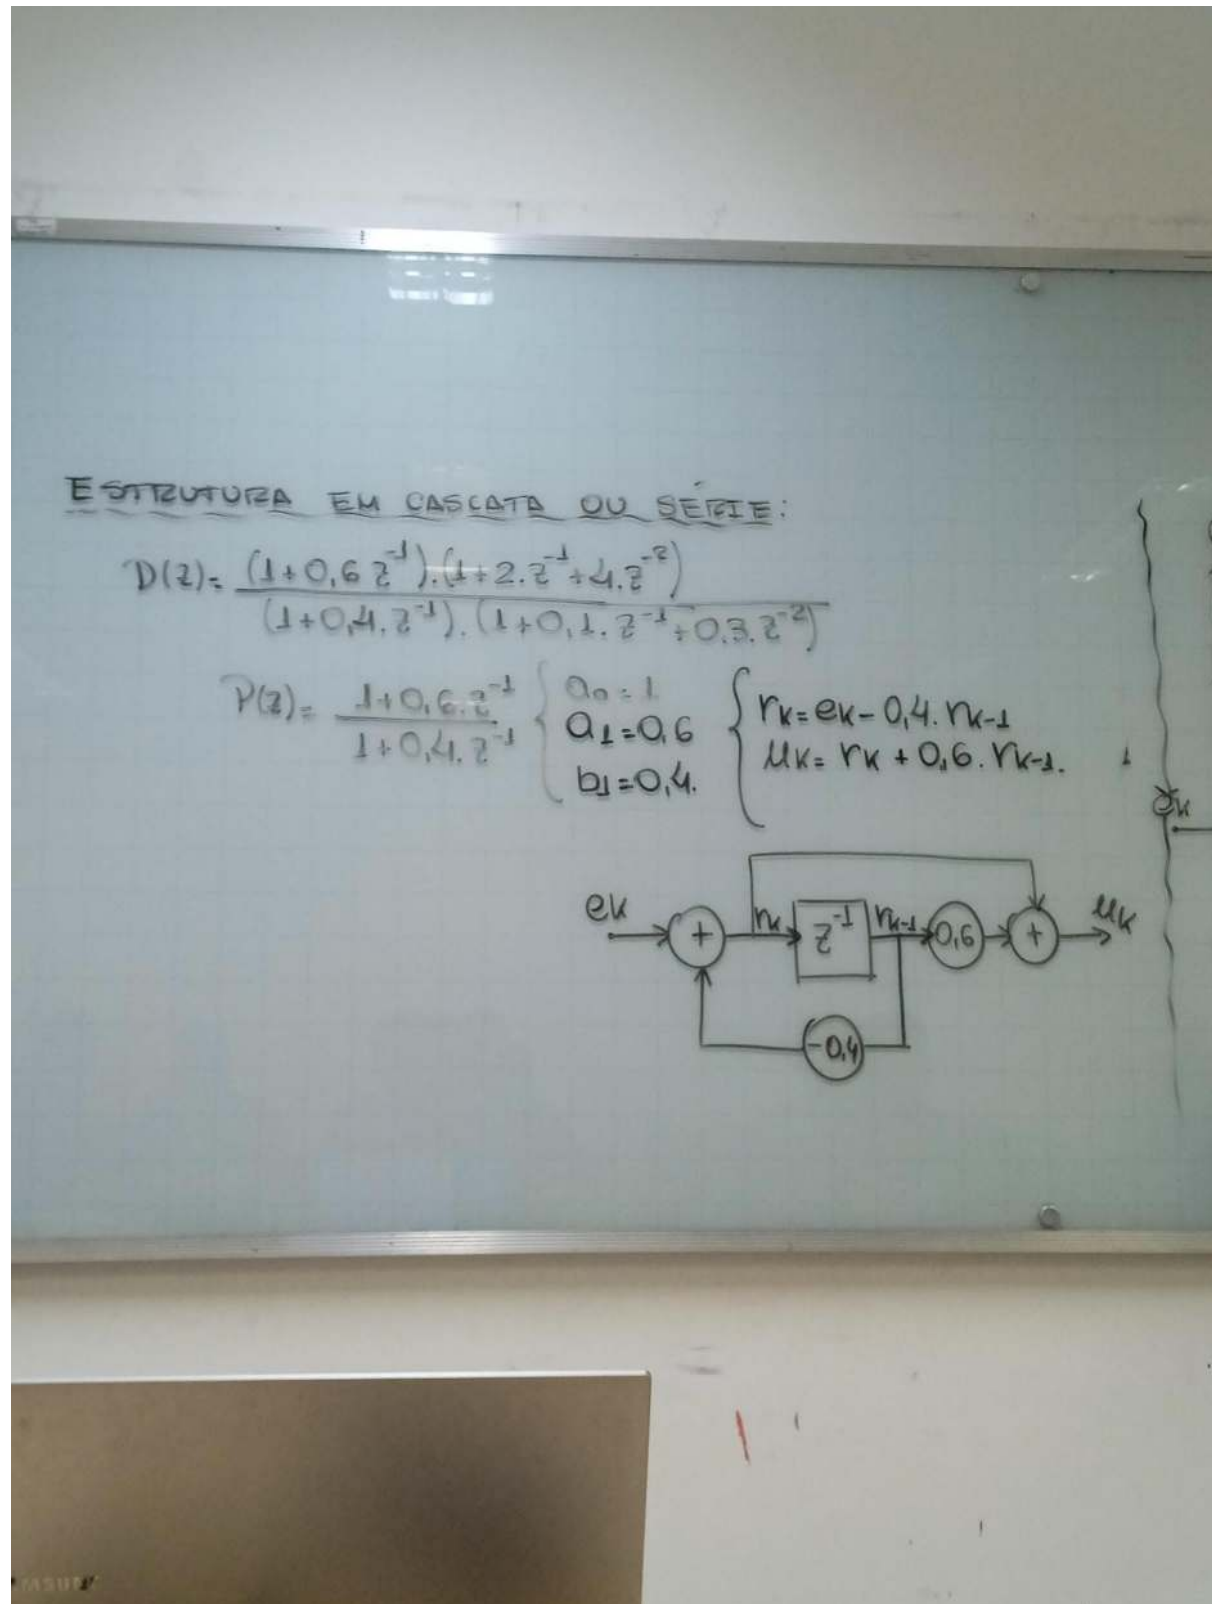 ESTRUTURA EM CASCATA OU SÉRIE:
D(z)= (1+0,6 z⁻¹).(1+2.z⁻¹+4.z⁻²)
(1+0,4.z⁻¹).(1+0,1.z⁻¹+0,3.z⁻²)
P(z)= 1+0,6.z⁻¹
1+0,4.z⁻¹
a0=1
a1=0,6
b1=0,4.
rk=ek-0,4.rk-1
μk=rk+0,6.rk-1.
ek
ek + rk z⁻¹ rk-1 0,6 + μk
-0,4